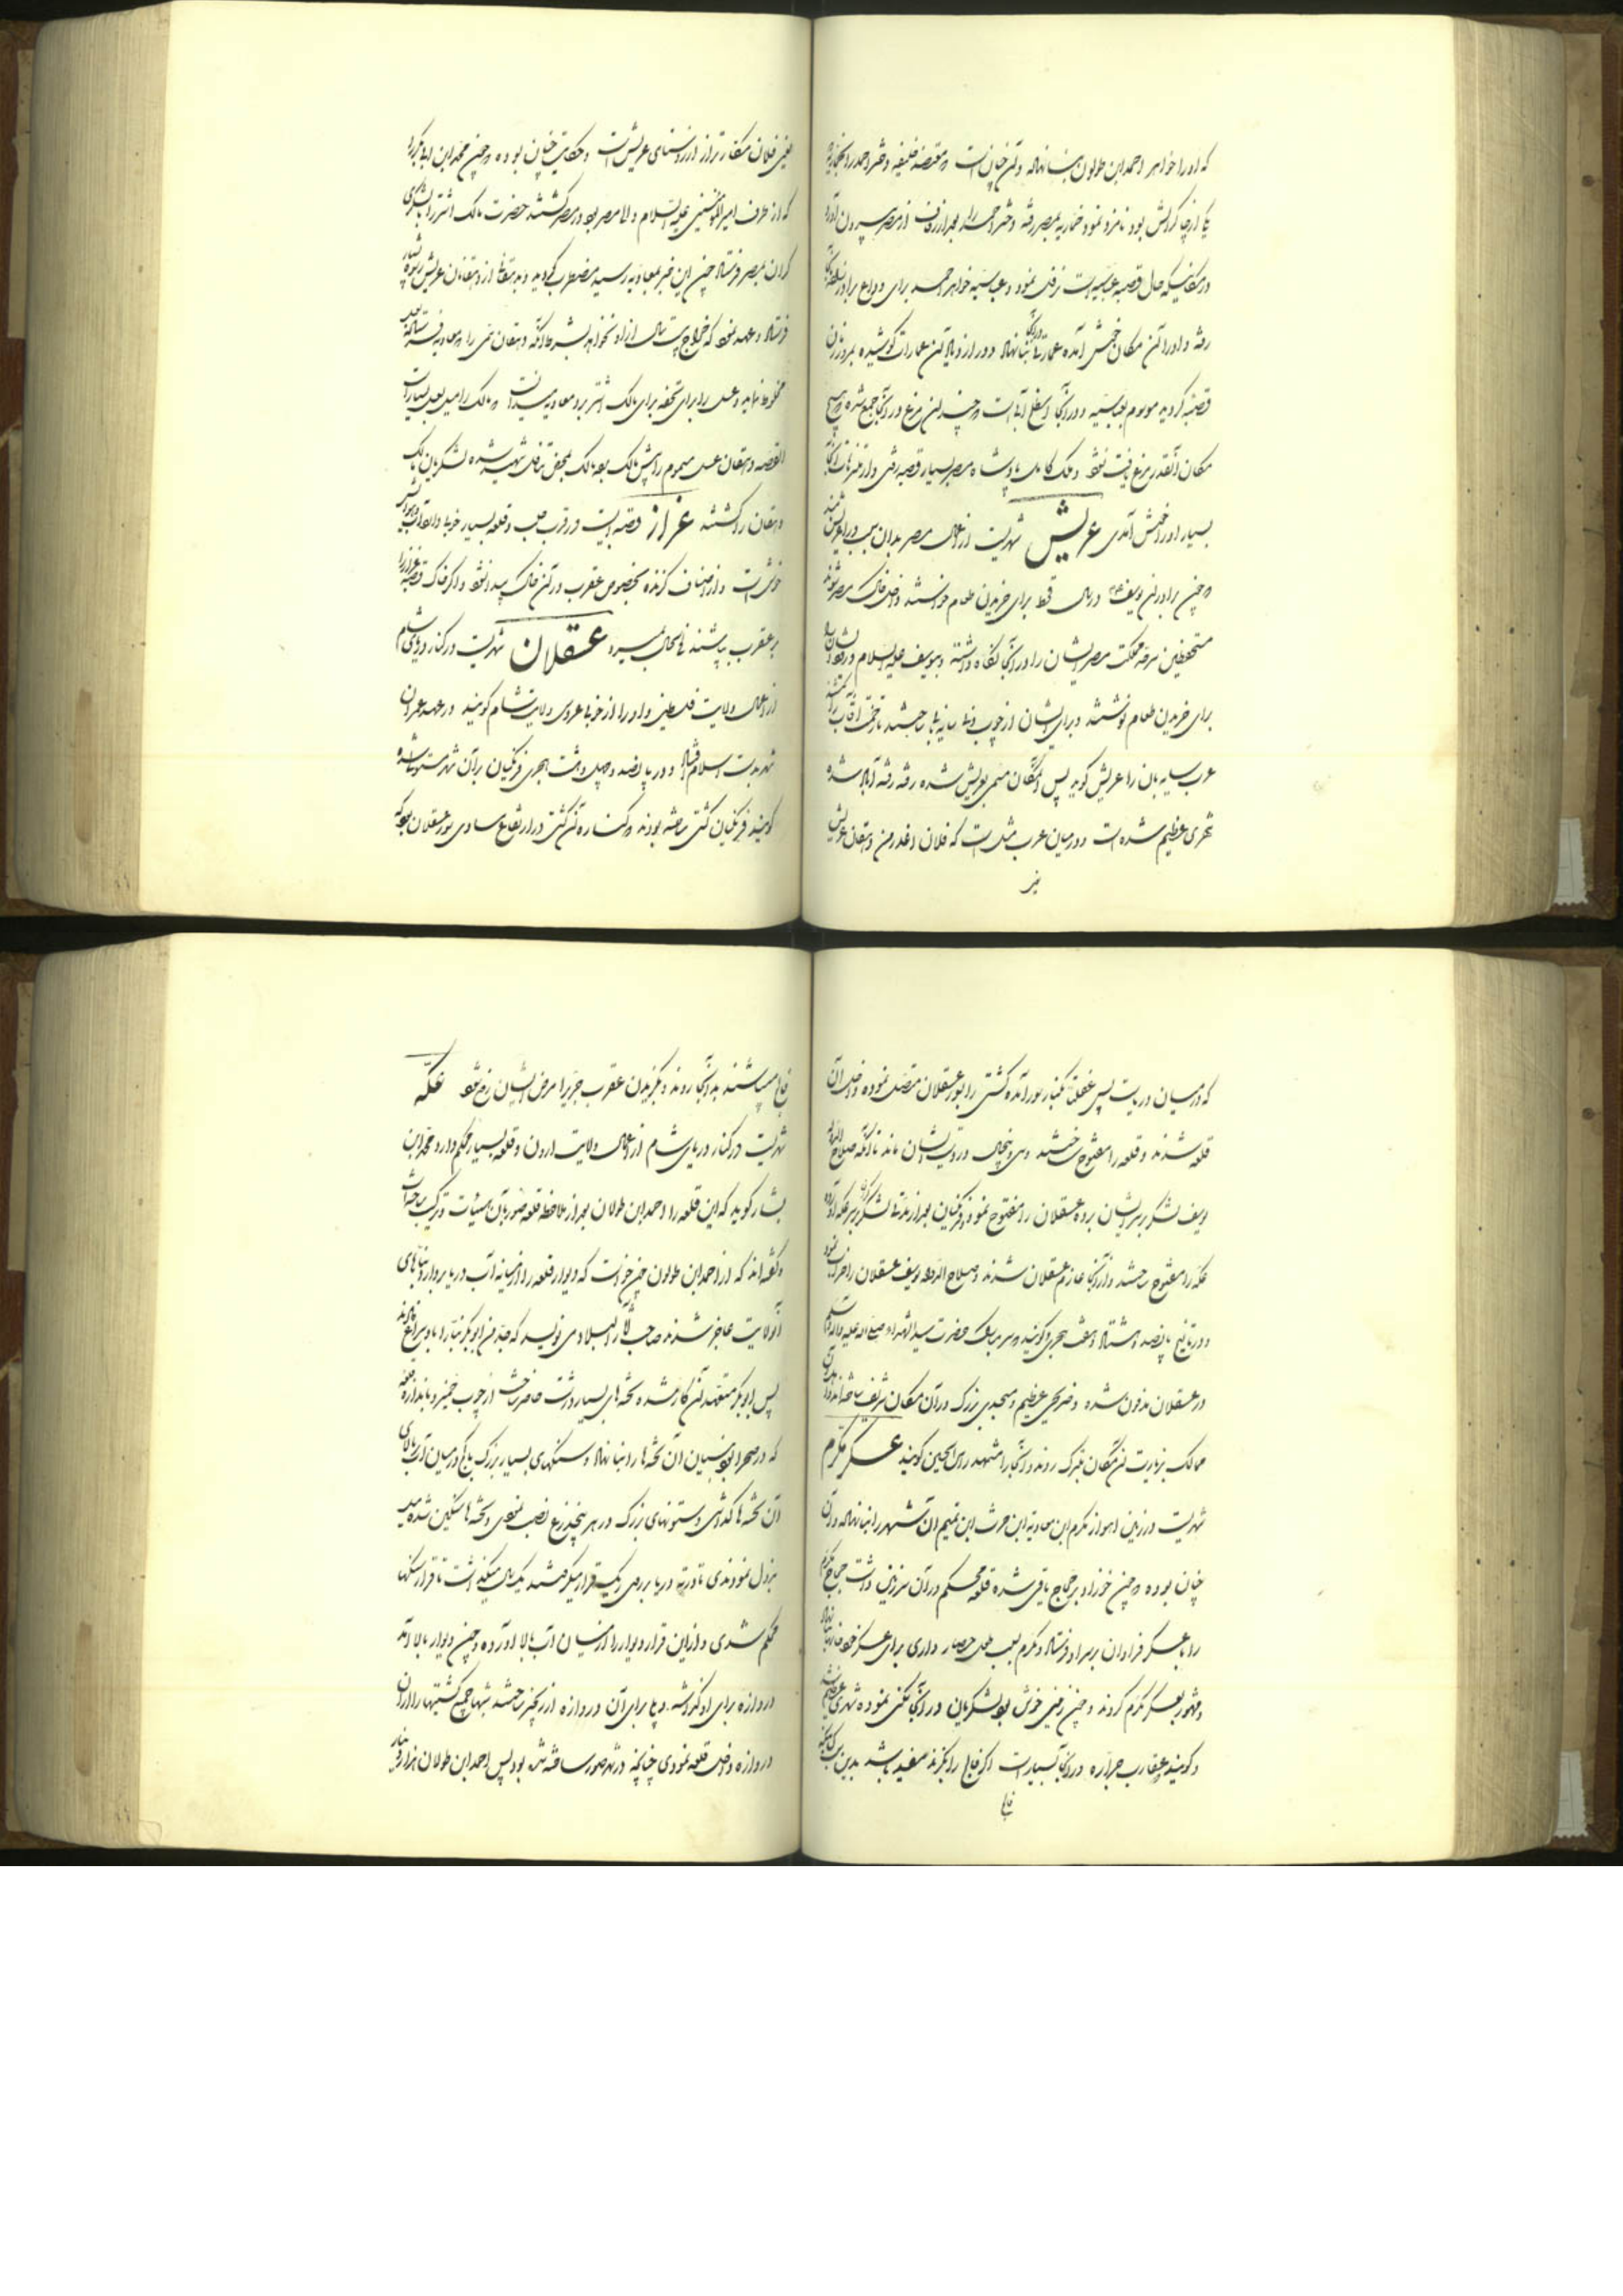 که او را خواهر احمد ابن طولون بنا نهاده و آن چنان است که معتضد خلیفه دختر احمد را
یکی از چاکرانش بود نامزد نمود خمارویه بمصر رفته و دختر احمد را بعد از زفاف از مصر بیرون آورد
در مکانیکه حال قصبه عباسیه است زفاف نمود و عباسیه خواهر احمد برای وداع برادرزاده
رفته و او را آن مکان خوش آمده عمارتها در آنجا بنا نهاد و در ازدیاد آن عمارات کوشیده بمرور زمان
قصبه گردید موسوم بعباسیه و در آنجا آبهاست و چندان مرغ در آنجا جمع شده که هیچ
مکان آنقدر مرغ یافت نشود و ملک کامل پادشاه مصر بسیار بقصبه رفتی و از تنزهات آنجا
بسیار او را خوش آمدی عریش شهریست از اعمال مصر بدان سبب او را عریش
و چون برادران یوسف در سال قحط برای خریدن طعام خواستند داخل خاک مصر شوند
مستحفظین سرحد مملکت مصر ایشان را در آنجا نگاه داشته و بیوسف علیه السلام
برای خریدن طعام نوشتند و برای ایشان از چوب و نی سایه‌بانها ساختند تا در تحت آفتاب
عرب سایه بان را عریش گوید پس آن مکان مسمی بعریش شده رفته رفته آباد شده
شهری عظیم شده است و در میان عرب مثل است که فلان اغدر من دهقان عریش
یعنی
یعنی فلان مکارتر از روستای عریش است و حکایت چنان بوده که چون محمد ابن ابابکر را
که از طرف امیرالمؤمنین علیه السلام والا مصر بود در مصر کشتند حضرت مالک اشتر را با لشکری
گران بمصر فرستاد چون این خبر بمعاویه رسید مضطرب گردید و بدهقانی از دهقانان عریش
فرستاد و عهد نمود که خراج بیست سال از او نخواهد بشرط آنکه دهقان سمی را که معاویه فرستاده
مخلوط نماید و عسل را برای تحفه برای مالک اشتر برد و معاویه میدانست که مالک را میل بعسل بسیار است
القصه دهقان عسل مسموم را پیش مالک برد مالک بمحض تناول شهید شده لشکریان مالک
دهقان را کشتند عزاز قصبه ایست در قرب حلب و قلعه بسیار خوبی دارد و آب و هوایش
خوش است و از اصناف گزنده بخصوص عقرب در آن خاک پیدا نشود و اگر خاک قصبه عزاز را
بر عقرب بپاشند فی الحال بمیرد عسقلان شهریست در کنار دریای شام
از اعمال ولایت فلسطین و او را از خوبی عروس ولایت شام گویند در عهد عمر آن
شهر بدست اسلام افتاد و در پانصد و چهل و هشت هجری فرنگیان بر آن شهر مستولی شده
گویند فرنگیان کشتی ساخته بودند که کناره آن کشتی در ارتفاع مساوی سور عسقلان بود
که در میان دریاست پس غفلتاً بکنار سور آمده کشتی را بسور عسقلان متصل نموده داخل آن
قلعه شدند و قلعه را مفتوح ساختند و سی و پنج سال در دست ایشان ماند تا آنکه صلاح الدین
یوسف لشکر بر سر ایشان برده عسقلان را مفتوح نمود و فرنگیان بعد از مدتی لشکر بر سر عکه آورده
عکه را مفتوح ساختند و از آنجا عازم عسقلان شدند و صلاح الدین یوسف عسقلان را خراب نمود
و در تاریخ پانصد و هشتاد و هفت هجری و گویند که سر مبارک حضرت سید الشهدا صلی الله علیه و آله وسلم
در عسقلان مدفون شده و ضریحی عظیم و مسجدی بزرگ در آن مکان شریف ساخته‌اند
ممالک بزیارت آن مکان متبرک روند و آنجا را مشهد راس الحسین گویند عسکر مکرم
شهریست در زمین اهواز مکرم ابن معاویه ابن حرث ابن تمیم آن شهر را بنا نهاده و آن
چنان بوده که چون خرزاد بر حجاج یاغی شده قلعه محکم در آن سرزمین داشت حجاج مکرم
را با عسکر فراوان بر سر او فرستاد و مکرم بسبب طول حصار داری برای عسکر خود
مشهور بعسکر مکرم گردند و چون زمین خوش بود لشکریان در آنجا سکنی نموده شهری عظیم شد
و گویند عقارب جراره در آنجا بسیار است اگر فالج را بگزند مفید باشد بدین سبب
فالج
فالج میباشند بدانجا روند و بگزیدن عقرب جراره مرض ایشان رفع شود عکه
شهریست در کنار دریای شام از اعمال ولایت اردن و قلعه بسیار محکم دارد محمد ابن
بشار گوید که این قلعه را احمد ابن طولان بعد از ملاحظه قلعه صور بآن هیئت و ترکیب ساخته است
و گفته‌اند که از احمد ابن طولون چون خواست که دیوار قلعه را از میانه آب دریا بردارد بناهای
آن ولایت عاجز شدند صاحب آثار البلاد می نویسد که جد من ابوبکر بنا را
پس ابوبکر متعهد آن کار شده تخته‌های بسیار درشت حاضر ساخت از چوب جمیز و باندازه قلعه
که در صحرا بود بنیان آن تخته‌ها را بنا نهاد و سنگهای بسیار بزرگ با گچ در میان آب بالای
آن تخته‌ها گذاشتی و ستونهای بزرگ در هر پنج ذرع نصب نمودی و تخته‌ها سنگین شده میل
بنزول نمودندی تا در ته دریا بر روی ریگ قرار میگرفتند یک سال میگذاشت تا قرار سنگها
محکم شدی و از این قرار دیوار را از میان آب بالا آورده و چون دیوار بالا آمد
دروازه برای او گذاشته و پلی برای آن دروازه از زنجیر ساختند شبها جمیع کشتیها را از آن
دروازه داخل قلعه نمودی چنانچه در شهر صور ساخته شده بود پس احمد ابن طولان هزار دینار